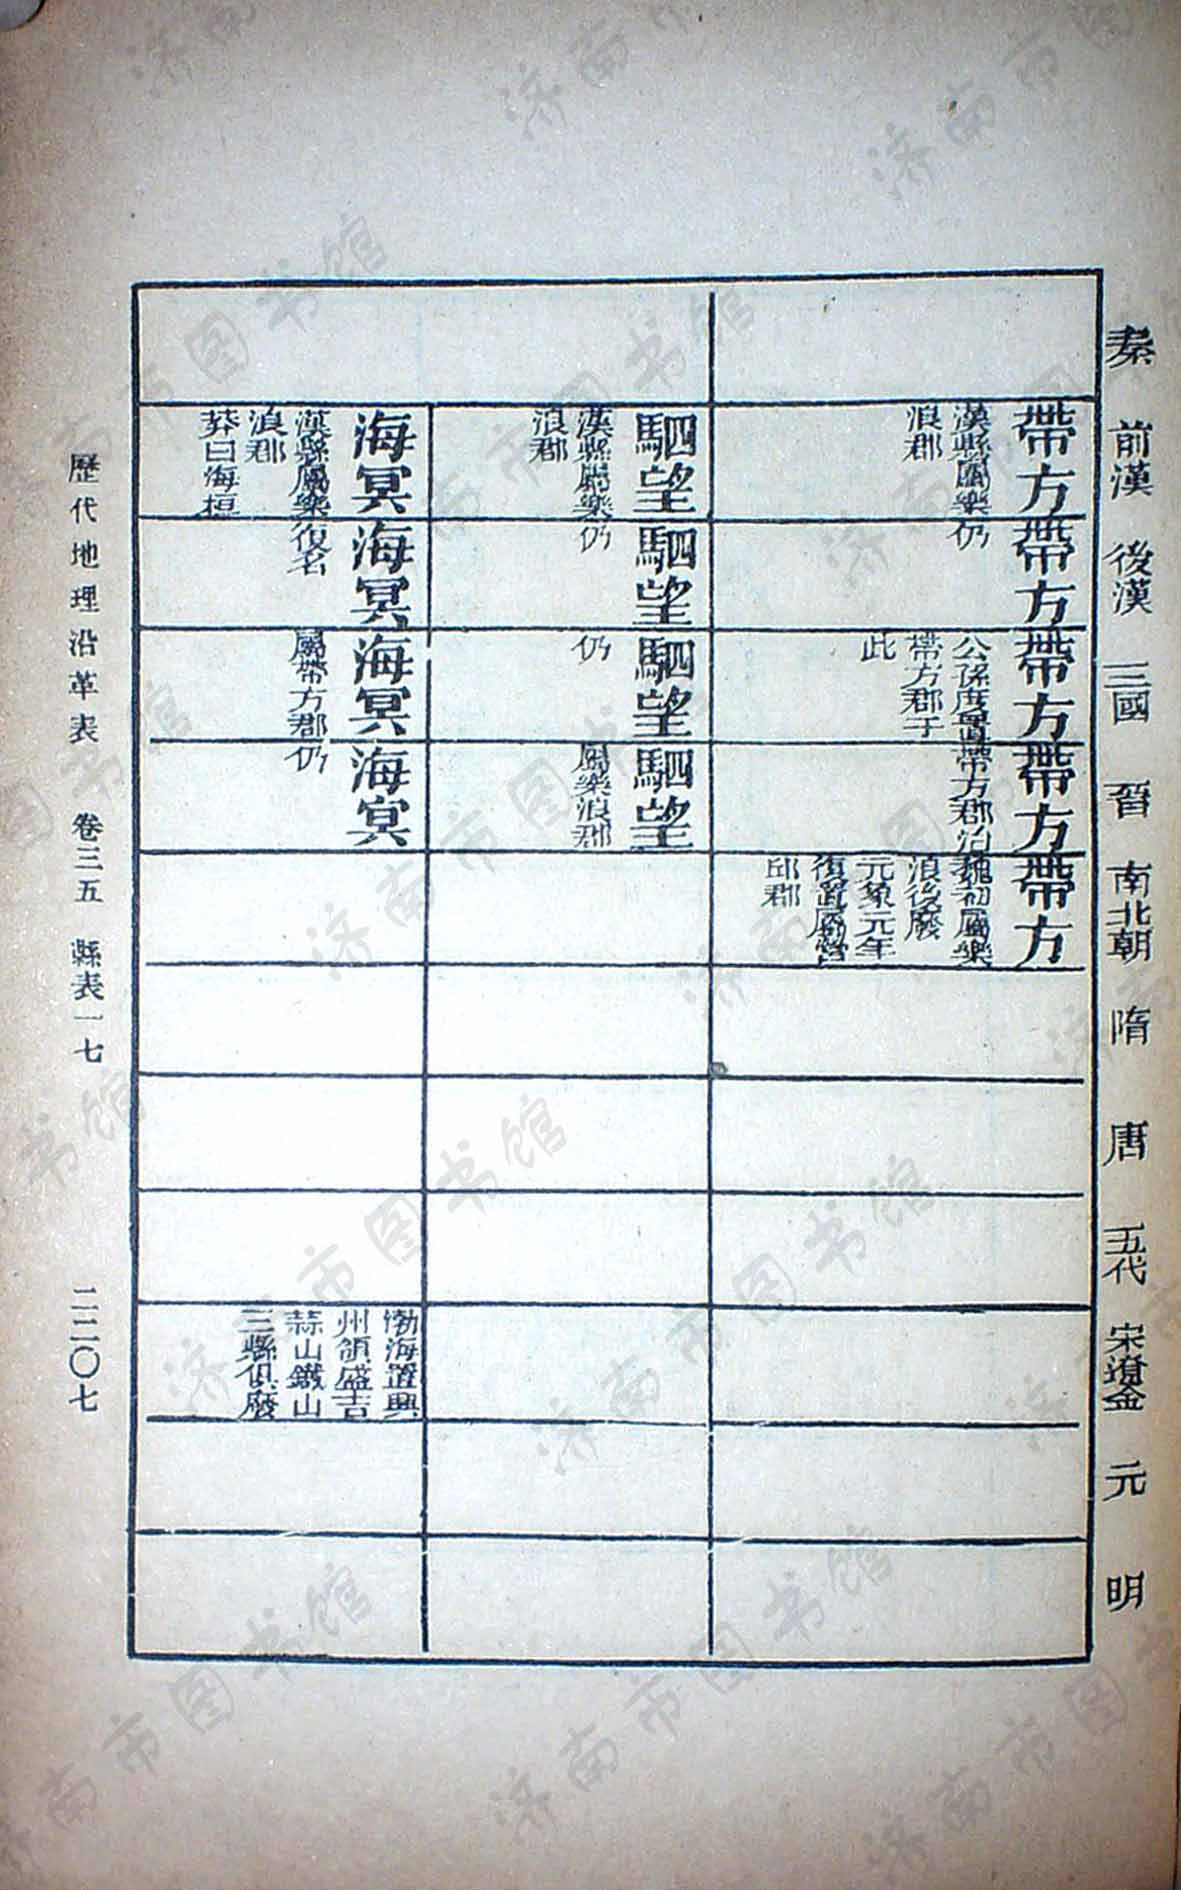 秦
前漢
後漢
三國
晉
南北朝
隋
唐
五代
宋遼金
元
明
帶方
漢縣屬樂
浪郡
帶方
仍
帶方
公孫度置
帶方郡于
此
帶方
帶方郡治
帶方
魏初屬樂
浪後廢
元象元年
復置屬營
邱郡
駟望
漢縣屬樂
浪郡
駟望
仍
駟望
仍
駟望
屬樂浪郡
海冥
漢縣屬樂
浪郡
莽曰海桓
海冥
復名
海冥
屬帶方郡
海冥
仍
渤海置興
州領盛吉
蒜山鐵山
三縣俱廢
歷代地理沿革表 卷三五 縣表一七 二二〇七
济南市图书馆